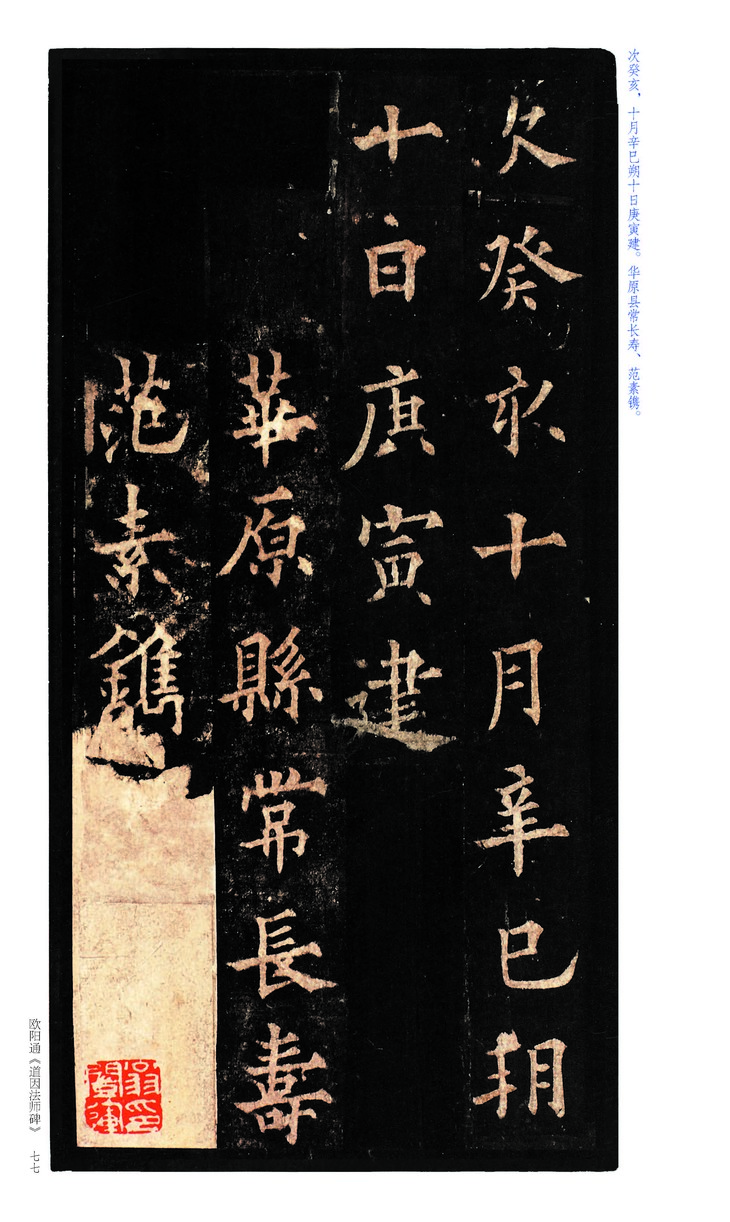 次癸亥、十月辛巳朔十日庚寅建。华原县常长寿、范素镌。
次癸亥十月辛巳朔
十日庚寅建
華原縣常長壽
范素鐫
欧阳通《道因法师碑》 七七